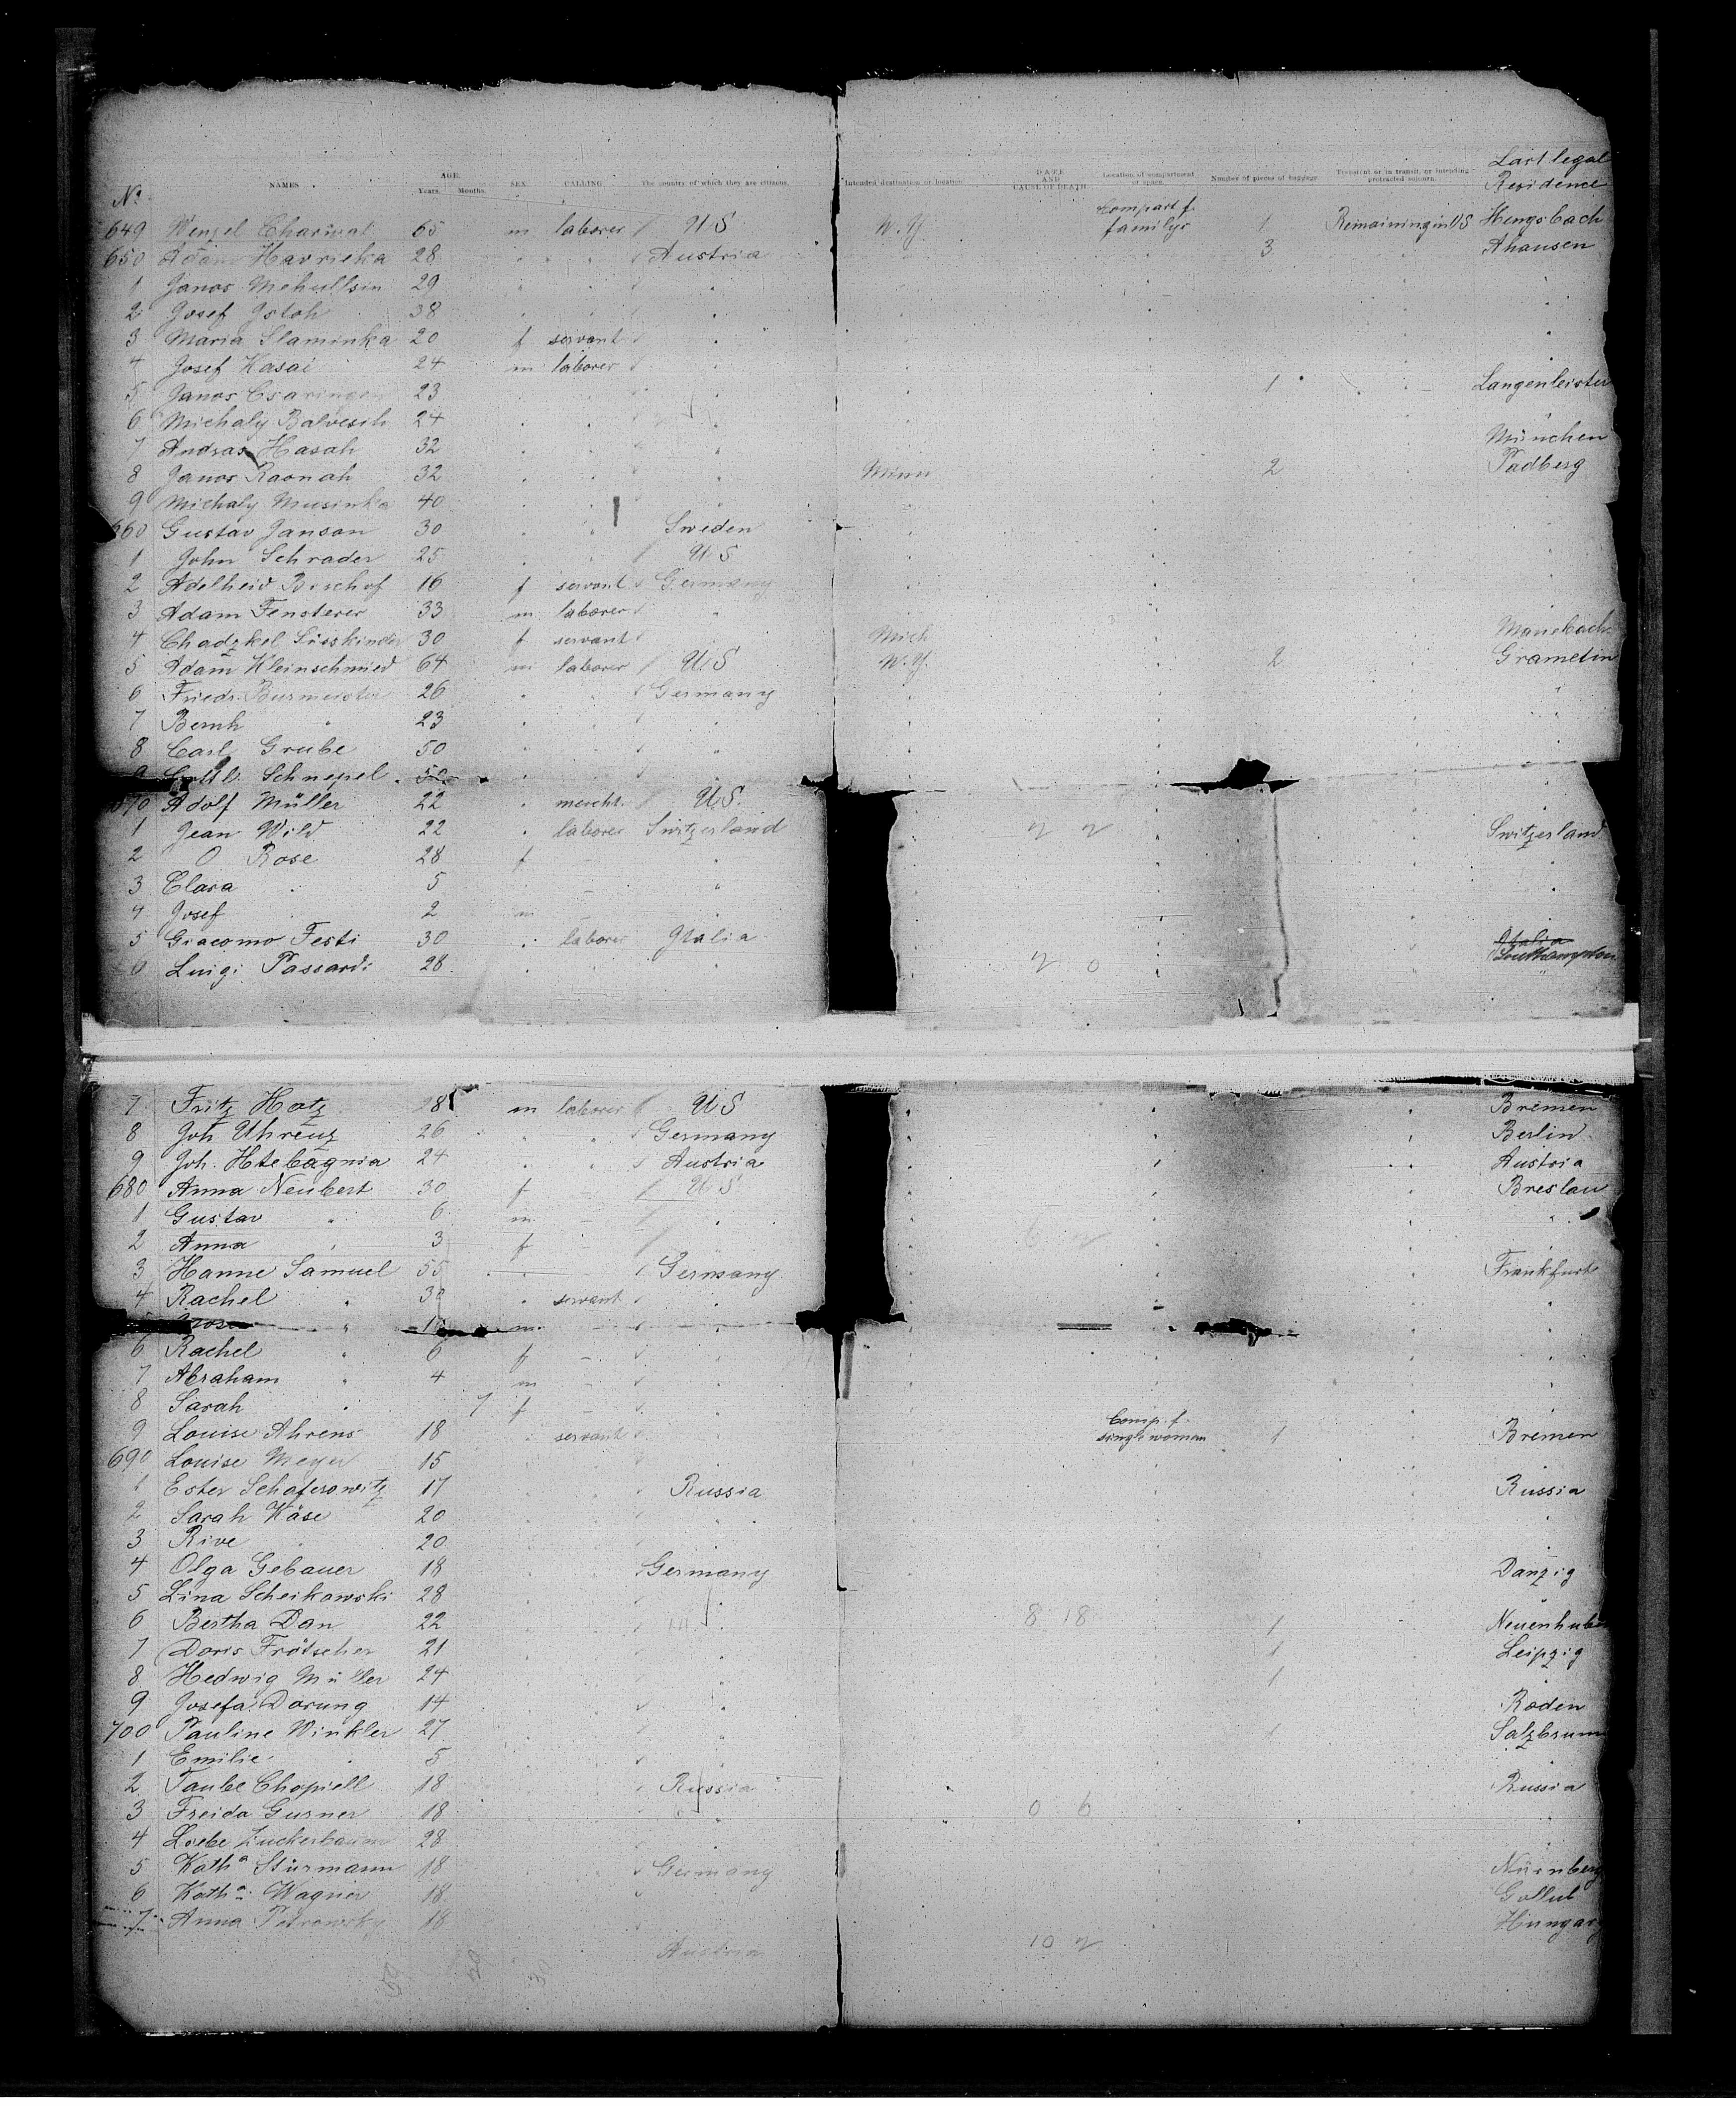 Last legal
AGE.
NAMES SEX. CALLING. The country of which they are citizens. Intended destination or location DATE AND CAUSE OF DEATH. Location of compartment or space. Number of pieces of baggage Transient or in transit, or intending protracted sojourn. Residence
No Years. Months.
649 Wenzel Charivat 65 m laborer / US N.Y. Compart f. familys 1 Remaining in US Hengsbach
650 Adam Havrieka 28 " " " Austria " 3 " Ahausen
1 Janos 29
2 Josef 38
3 Maria Slaminka 20 f servant
4 Josef Kasai 24 m laborer
5 Janos 23 1 Langenleister
6 Michaly 24
7 Andras Hasah 32 München
8 Janos Raonah 32 Minn 2 Padberg
9 Michaly Musinka 40
660 Gustav Janson 30 Sweden
1 John Schrader 25 / US
2 Adelheid Bischof 16 f servant Germany
3 Adam Fensterer 33 m laborer "
4 Chadzkel Süsskinder 30 f servant Mich Manebach
5 Adam Kleinschmied 64 m laborer / US N.Y. 2 Grametin
6 Friedr. Burmeister 26 Germany
7 Bernh " 23
8 Carl Grube 50
9 Schnepel 50
670 Adolf Müller 22 " mercht. / US.
1 Jean Wild 22 " laborer Switzerland Switzerland
2 Rose 28 f - "
3 Clara 5 - "
4 Josef 2 m -
5 Giacomo Festi 30 " laborer Italia Italia
6 Luigi Passardi 28 Southampton
7 Fritz Hotz 28 m laborer / US Bremen
8 Joh Uhreuz 26 " Germany Berlin
9 Joh. Htebagnia 24 " Austria Austria
680 Anna Neubert 30 f - / US Breslau
1 Gustav " 6 m - / "
2 Anna " 3 f - /
3 Hanne Samuel 55 " - Germany Frankfurt
4 Rachel " 30 " servant "
m
6 Rachel " 6 f -
7 Abraham " 4 m -
8 Sarah " 7 f -
9 Louise Ahrens 18 servant Comp. f. single women 1 Bremen
690 Louise Meyer 15
1 Ester Schaferowitz 17 Russia Russia
2 Sarah Käse 20
3 Rive " 20
4 Olga Gebauer 18 Germany Danzig
5 Lina Scheikowski 28
6 Bertha Dan 22 8 18 1
7 Doris Frötscher 21 1 Leipzig
8 Hedwig Müller 24 1
9 Josefa Dorung 14 Roden
700 Pauline Winkler 27 1 Salzbrunn
1 Emilie " 5
2 Taube Chopiell 18 Russia Russia
3 Freida Gurner 18 0 6
4 Loebe Zuckerbaum 28
5 Katha Stürmann 18 Germany Nürnberg
6 Katha Wagner 18 Gollub
7 Anna Petrowsky 18 Hungary
Austria 10